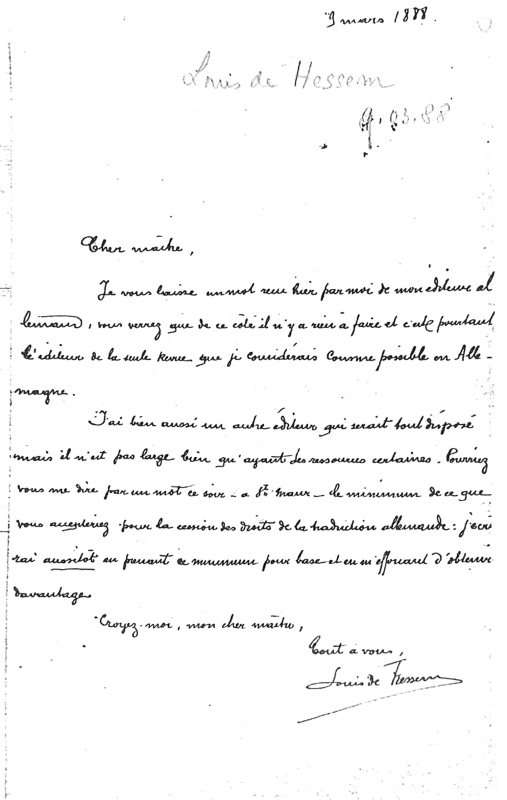 9 mars 1888.
Louis de Hessem
9.03.88
Cher maître,
Je vous laisse un mot reçu hier par moi de mon éditeur al
lemand, vous verrez que de ce côté il n'y a rien à faire et c'est pourtant
l'éditeur de la seule Revue que je considérais comme possible en Alle-
magne.
J'ai bien aussi un autre éditeur qui serait tout disposé
mais il n'est pas large bien qu'ayant des ressources certaines. Pourriez
vous me dire par un mot ce soir - à St Maur - le minimum de ce que
vous accepteriez pour la cession des droits de la traduction allemande: j'écri
rai aussitôt en prenant ce minimum pour base et en m'efforçant d'obtenir
davantage.
Croyez-moi, mon cher maître,
Tout à vous,
Louis de Hessem